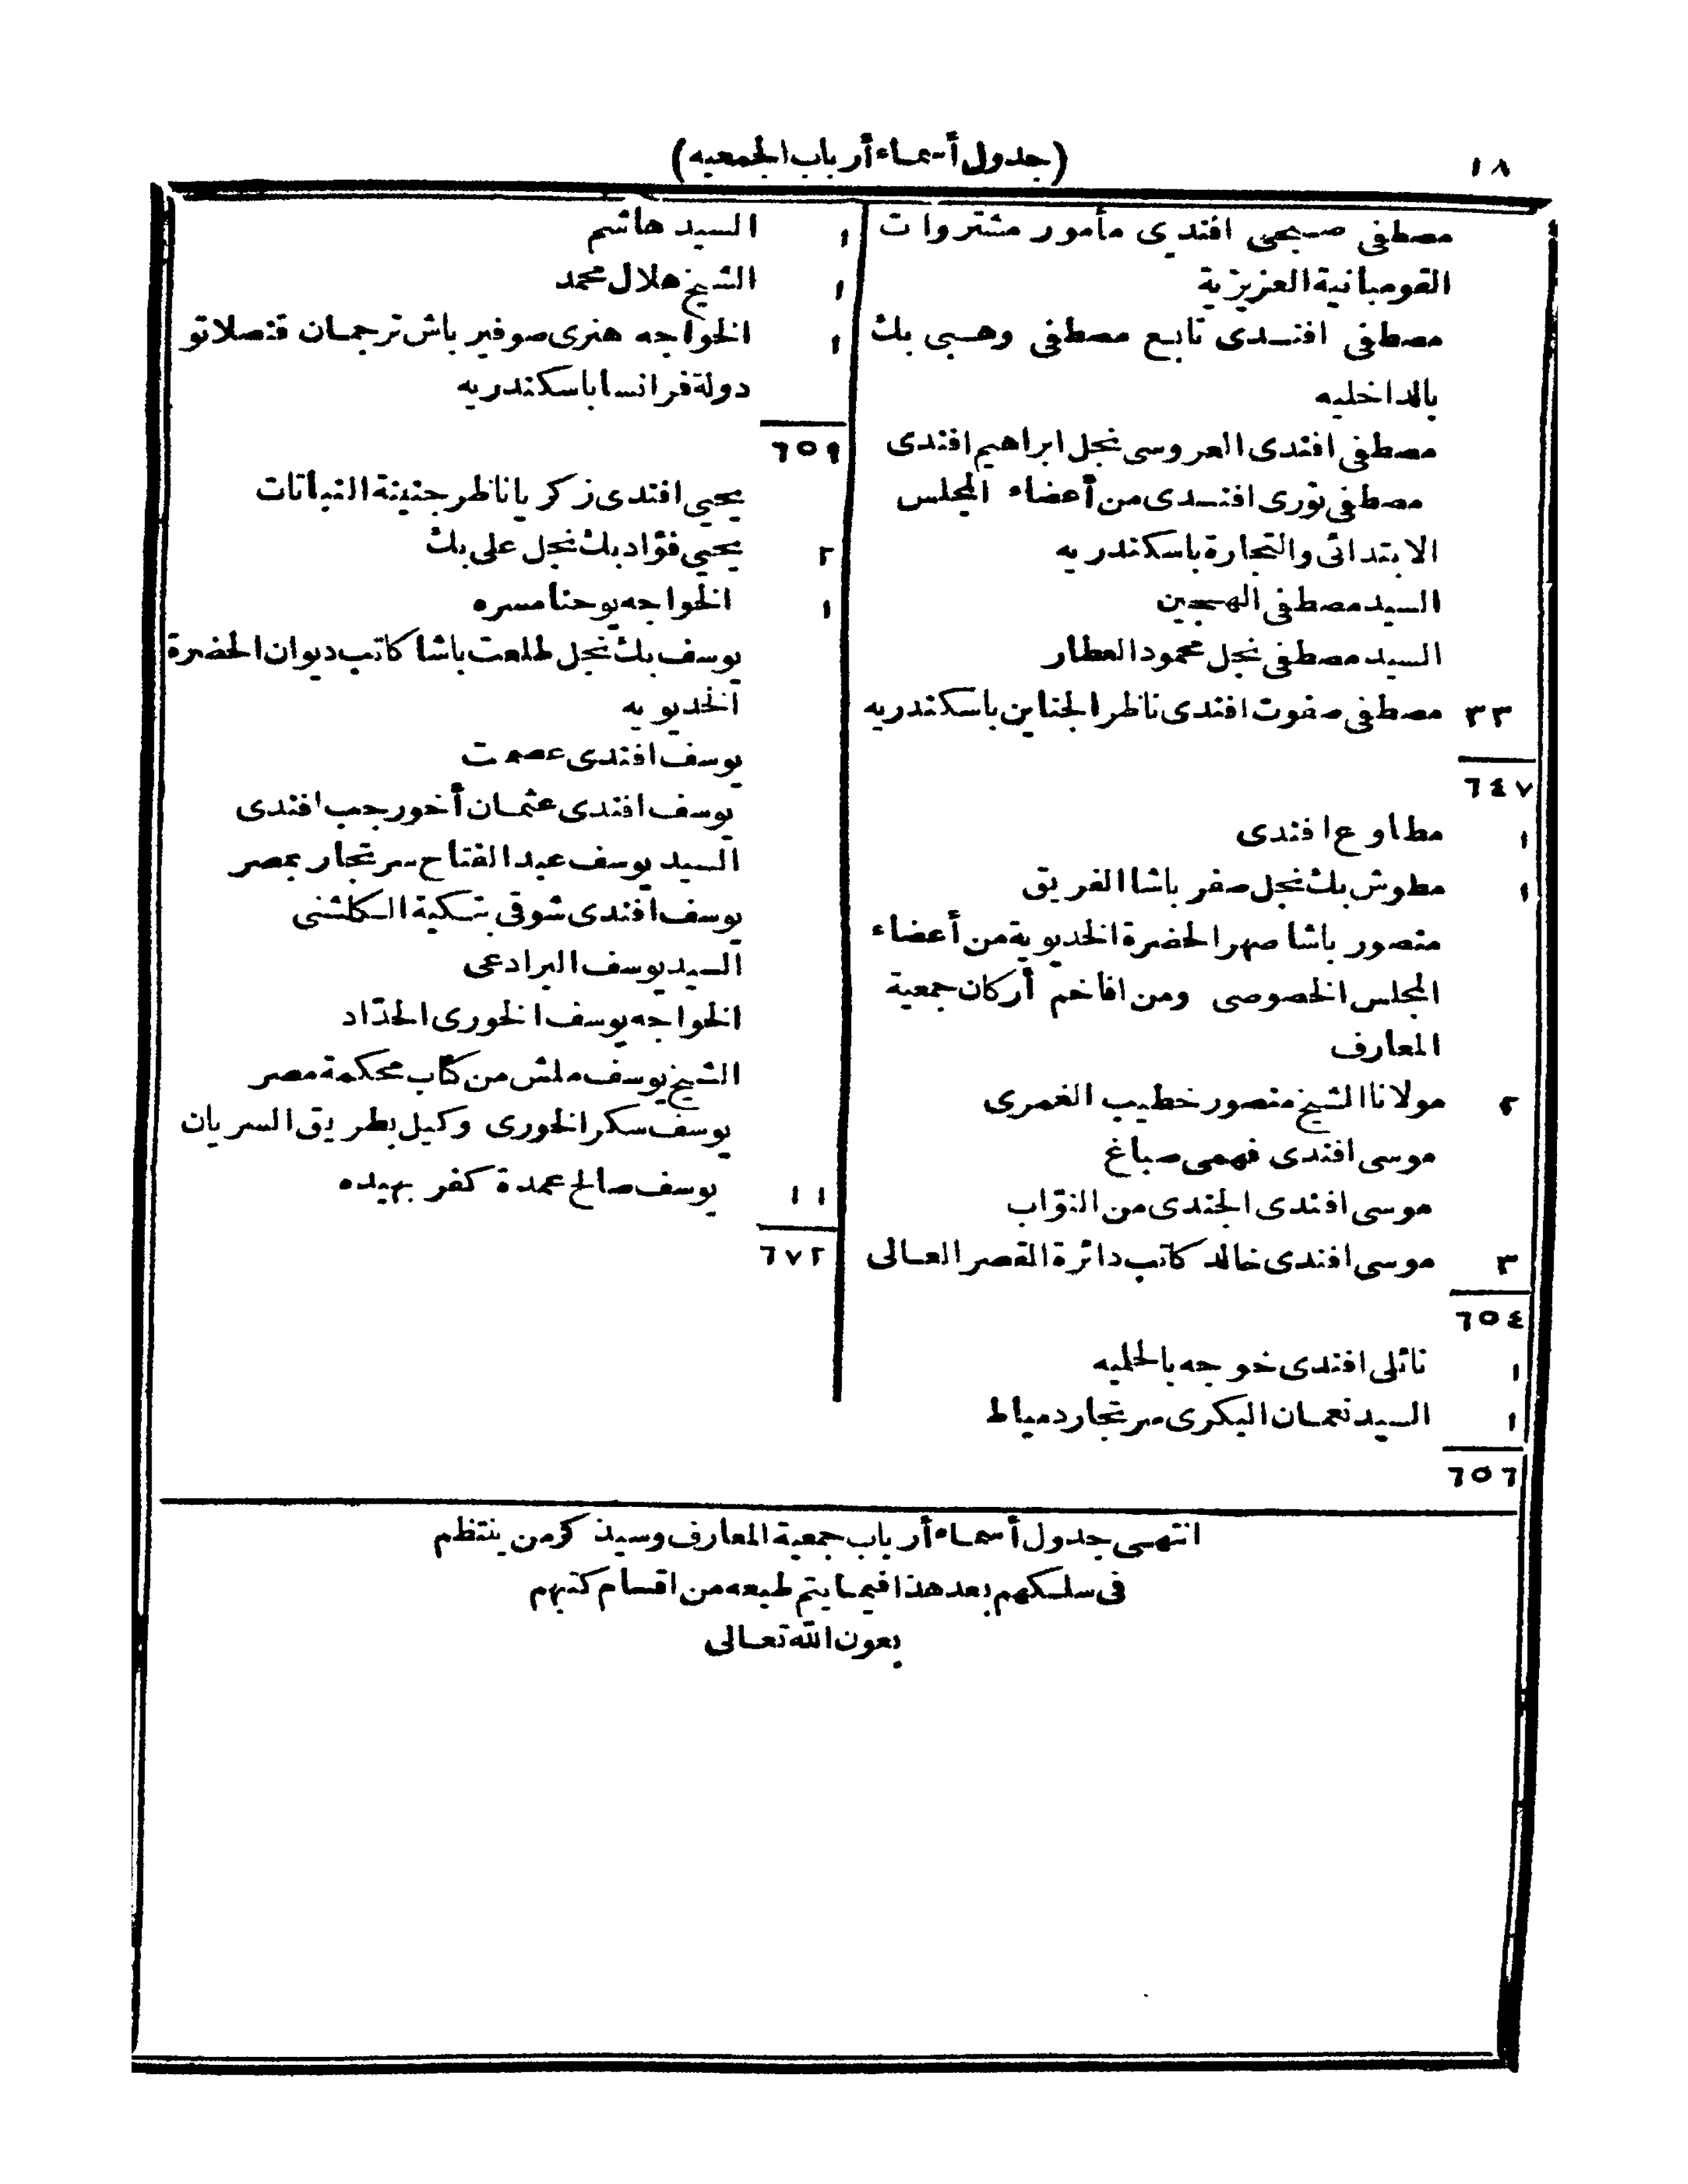 ١٨
(جدول أسماء أرباب الجمعيه)
مصطفى صبحى افندى مأمور مشتروات
القومبانية العزيزية
مصطفى افندى تابع مصطفى وهبى بك
بالداخليه
مصطفى افندى العروسى نجل ابراهيم افندى
مصطفى نورى افندى من أعضاء المجلس
الابتدائى والتجارة باسكندريه
السيد مصطفى الهجين
السيد مصطفى نجل محمود العطار
٣٣ مصطفى صفوت افندى ناظر الجناين باسكندريه
٦٤٧
١ مطاوع افندى
١ مطوش بك نجل صفر باشا الفريق
منصور باشا صهر الحضرة الخديوية من أعضاء
المجلس الخصوصى ومن افاخم أركان جمعية
المعارف
٢ مولانا الشيخ منصور خطيب الغمرى
موسى افندى فهمى صباغ
موسى افندى الجندى من النوّاب
٣ موسى افندى خالد كاتب دائرة القصر العالى
٦٥٤
١ نائلى افندى خوجه بالحلميه
١ السيد نعمان البكرى سر تجار دمياط
٦٥٦
١ السيد هاشم
١ الشيخ هلال محمد
١ الخواجه هنرى صوفير باش ترجمان قنصلاتو
دولة فرانسا باسكندريه
٦٥٩
يحيى افندى زكريا ناظر جنينة النباتات
٢ يحيى فؤاد بك نجل على بك
١ الخواجه يوحنا مسره
يوسف بك نجل طلعت باشا كاتب ديوان الحضرة
الخديويه
يوسف افندى عصمت
يوسف افندى عثمان أخو رجب افندى
السيد يوسف عبد الفتاح سر تجار بمصر
يوسف افندى شوقى بتكية الكلشنى
السيد يوسف البرادعى
الخواجه يوسف الخورى الحدّاد
الشيخ يوسف ملش من كتاب محكمة مصر
يوسف سكر الخورى وكيل بطريق السريان
١١ يوسف صالح عمدة كفر بهيده
٦٧٢
انتهى جدول أسماء أرباب جمعية المعارف وسيذكر من ينتظم
فى سلكهم بعد هذا فيما يتم طبعه من اقسام كتبهم
بعون الله تعالى